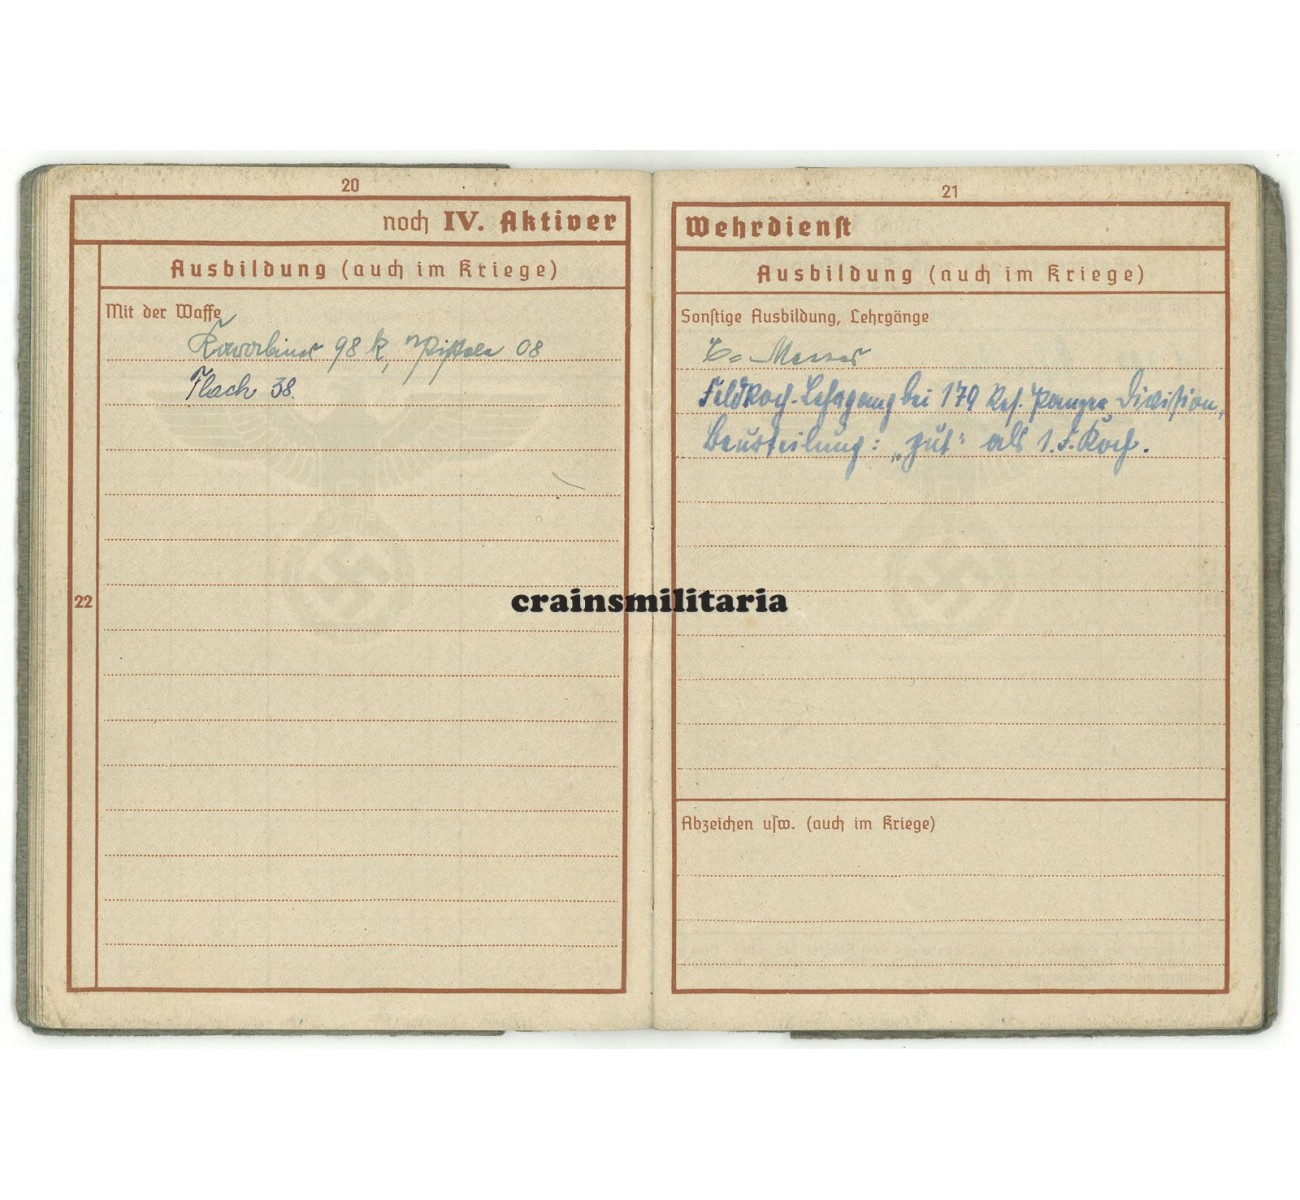 20
noch IV. Aktiver
Ausbildung (auch im Kriege)
Mit der Waffe
Karabiner 98 k, Pistole 08
Flach 38
22
21
Wehrdienst
Ausbildung (auch im Kriege)
Sonstige Ausbildung, Lehrgänge
Feldkoch-Lehrgang bei 179 Res. Panzer Division,
Beurteilung: „gut“ als 1. F. Koch.
Abzeichen usw. (auch im Kriege)
crainsmilitaria